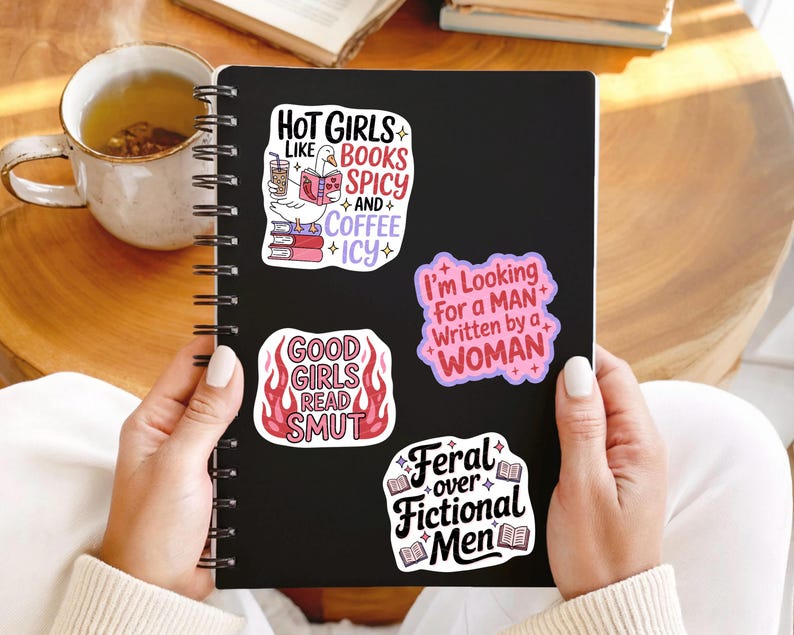 HOT GIRLS
LIKE BOOKS
SPICY
AND
COFFEE
ICY
I'm Looking
For a MAN
Written by a
WOMAN
GOOD
GIRLS
READ
SMUT
Feral
over
Fictional
Men